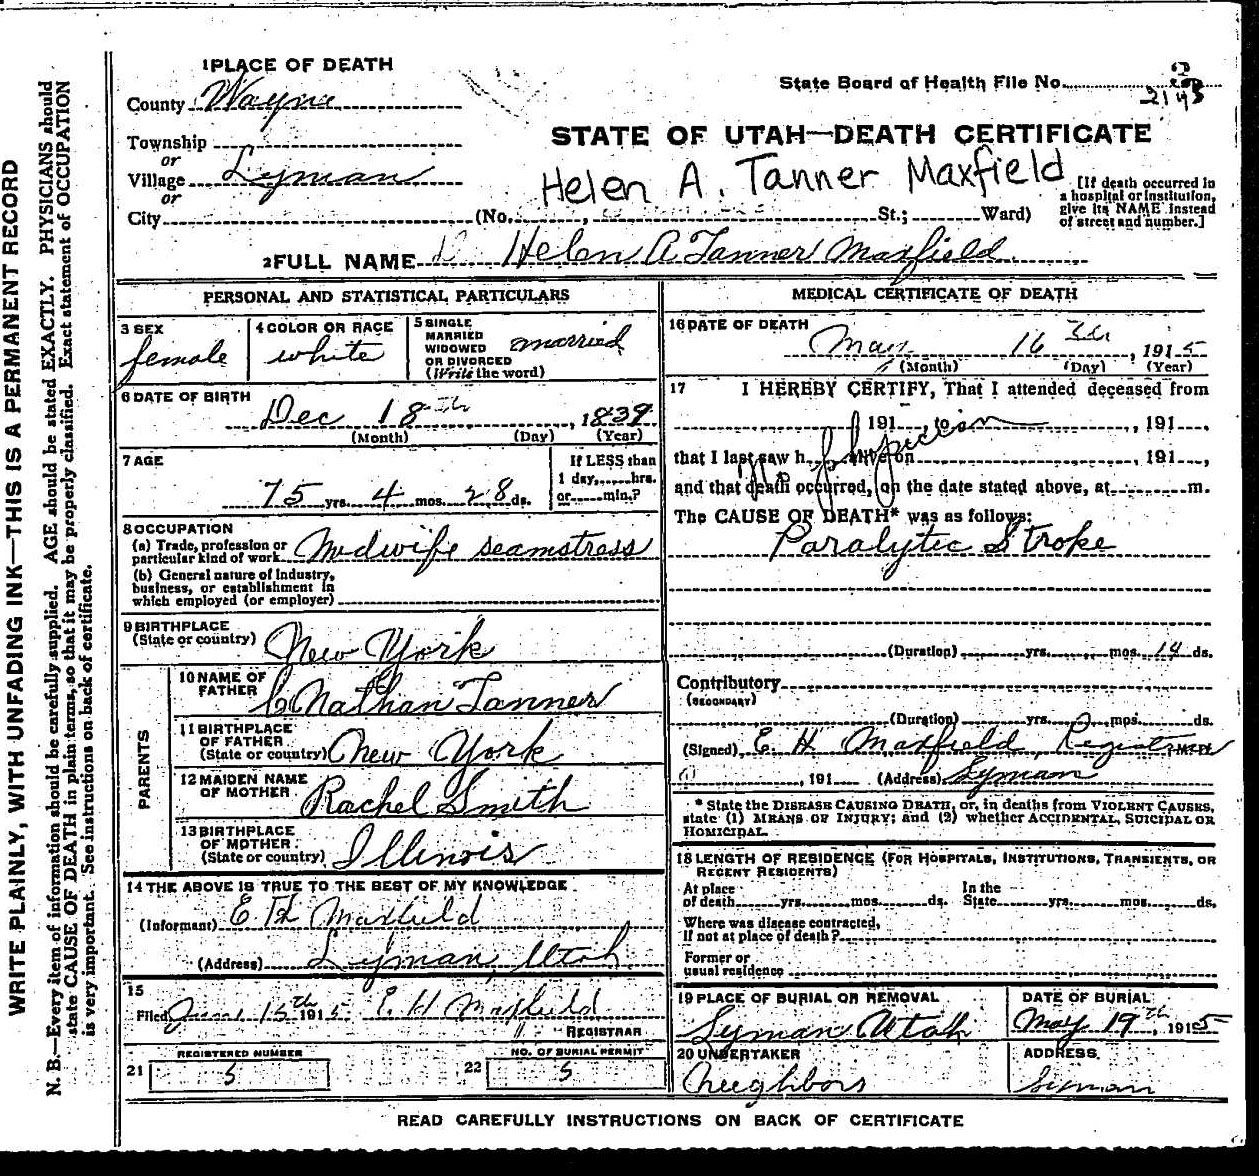 1 PLACE OF DEATH
County Wayne
State Board of Health File No.
Township
or
Village Lyman
or
City (No. , St.; Ward)
STATE OF UTAH—DEATH CERTIFICATE
Helen A. Tanner Maxfield
[If death occurred in
a hospital or institution,
give its NAME instead
of street and number.]
2 FULL NAME Helen A Tanner Maxfield
PERSONAL AND STATISTICAL PARTICULARS
3 SEX
female
4 COLOR OR RACE
white
5 SINGLE
MARRIED
WIDOWED
OR DIVORCED
(Write the word)
married
6 DATE OF BIRTH
Dec 18th, 1839
(Month) (Day) (Year)
7 AGE
75 yrs. 4 mos. 28 ds.
If LESS than
1 day, hrs.
or min.?
8 OCCUPATION
(a) Trade, profession or
particular kind of work Midwife seamstress
(b) General nature of Industry,
business, or establishment in
which employed (or employer)
9 BIRTHPLACE
(State or country) New York
PARENTS
10 NAME OF
FATHER Nathan Tanner
11 BIRTHPLACE
OF FATHER
(State or country) New York
12 MAIDEN NAME
OF MOTHER Rachel Smith
13 BIRTHPLACE
OF MOTHER
(State or country) Illinois
14 THE ABOVE IS TRUE TO THE BEST OF MY KNOWLEDGE
(Informant) E H Maxfield
(Address) Lyman, Utah
15
Filed 15th 1915 E. H Maxfield
REGISTRAR
REGISTERED NUMBER
21 5
NO. OF BURIAL PERMIT
22 5
MEDICAL CERTIFICATE OF DEATH
16 DATE OF DEATH
May 16, 1915
(Month) (Day) (Year)
17 I HEREBY CERTIFY, That I attended deceased from
, 191 , to , 191 ,
that I last saw h alive on , 191 ,
No physician
and that death occurred, on the date stated above, at m.
The CAUSE OF DEATH* was as follows:
Paralytic Stroke
(Duration) yrs. mos. 14 ds.
Contributory
(SECONDARY)
(Duration) yrs. mos. ds.
(Signed) E. H Maxfield Registrar
, 191 (Address) Lyman
* State the DISEASE CAUSING DEATH, or, in deaths from VIOLENT CAUSES,
state (1) MEANS OF INJURY; and (2) whether ACCIDENTAL, SUICIDAL OR
HOMICIDAL.
18 LENGTH OF RESIDENCE (FOR HOSPITALS, INSTITUTIONS, TRANSIENTS, OR
RECENT RESIDENTS)
At place
of death yrs. mos. ds.
In the
State yrs. mos. ds.
Where was disease contracted,
If not at place of death?
Former or
usual residence
19 PLACE OF BURIAL OR REMOVAL
Lyman Utah
DATE OF BURIAL
May 19th, 1915
20 UNDERTAKER
Neighbors
ADDRESS
Lyman
READ CAREFULLY INSTRUCTIONS ON BACK OF CERTIFICATE
WRITE PLAINLY, WITH UNFADING INK—THIS IS A PERMANENT RECORD
N. B.—Every item of information should be carefully supplied. AGE should be stated EXACTLY. PHYSICIANS should
state CAUSE OF DEATH in plain terms, so that it may be properly classified. Exact statement of OCCUPATION
is very important. See instructions on back of certificate.